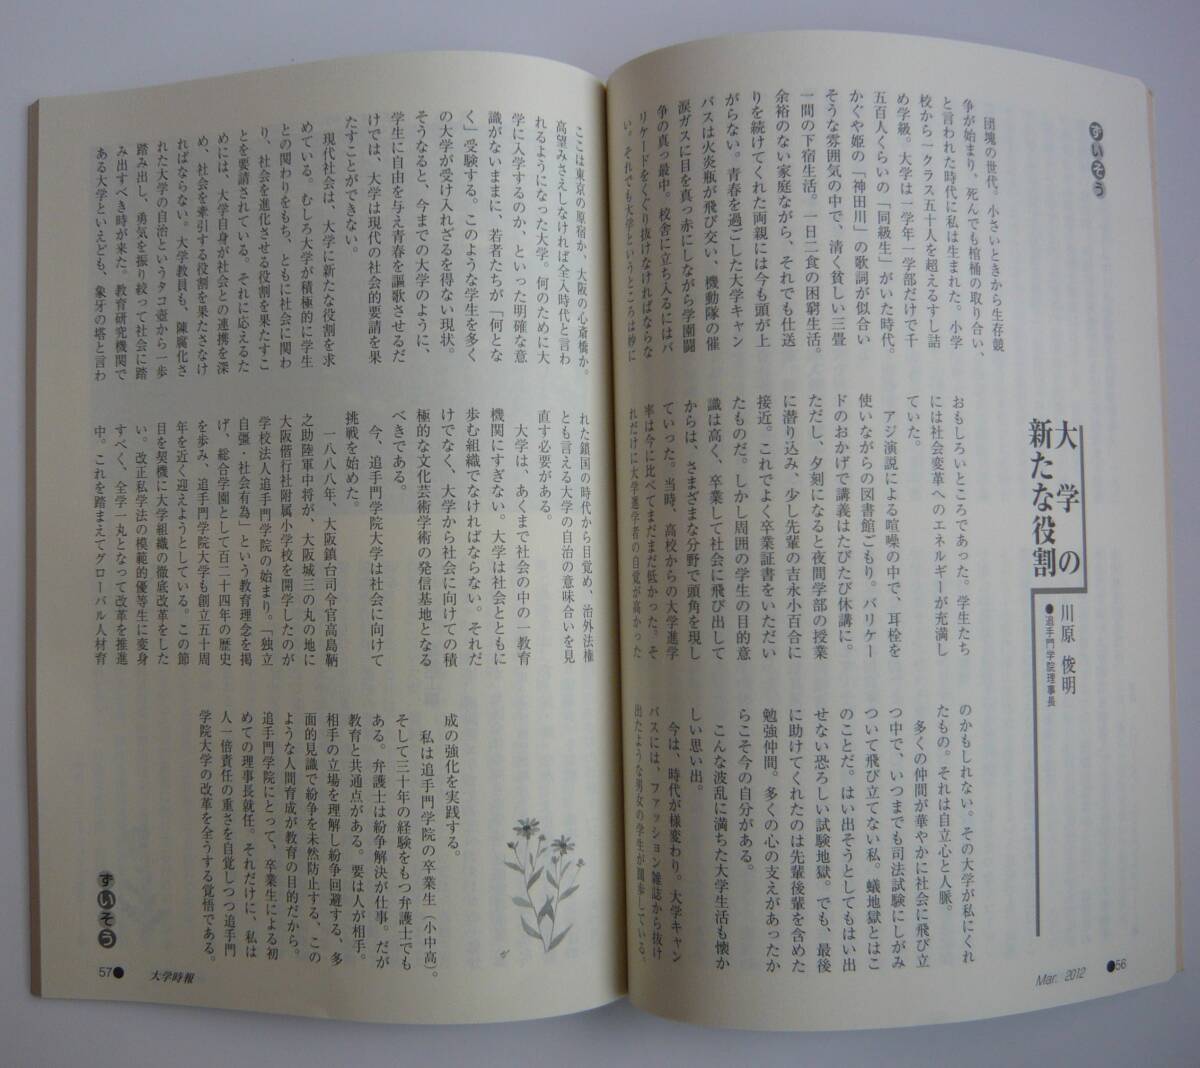 ずいそう
大学の
新たな役割
川原 俊明
●追手門学院理事長
団塊の世代。小さいときから生存競
争が始まり、死んでも棺桶の取り合い、
と言われた時代に私は生まれた。小学
校から一クラス五十人を超えるすし詰
め学級。大学は一学年一学部だけで千
五百人くらいの「同級生」がいた時代。
かぐや姫の「神田川」の歌詞が似合い
そうな雰囲気の中で、清く貧しい三畳
一間の下宿生活。一日二食の困窮生活。
余裕のない家庭ながら、それでも仕送
りを続けてくれた両親には今も頭が上
がらない。青春を過ごした大学キャン
パスは火炎瓶が飛び交い、機動隊の催
涙ガスに目を真っ赤にしながら学園闘
争の真っ最中。校舎に立ち入るにはバ
リケードをくぐり抜けなければならな
い。それでも大学というところは妙に
おもしろいところであった。学生たち
には社会変革へのエネルギーが充満し
ていた。
アジ演説による喧噪の中で、耳栓を
使いながらの図書館ごもり。バリケー
ドのおかげで講義はたびたび休講に。
ただし、夕刻になると夜間学部の授業
に潜り込み、少し先輩の吉永小百合に
接近。これでよく卒業証書をいただい
たものだ。しかし周囲の学生の目的意
識は高く、卒業して社会に飛び出して
からは、さまざまな分野で頭角を現し
ていった。当時、高校からの大学進学
率は今に比べてまだまだ低かった。そ
れだけに大学進学者の自覚が高かった
のかもしれない。その大学が私にくれ
たもの。それは自立心と人脈。
多くの仲間が華やかに社会に飛び立
つ中で、いつまでも司法試験にしがみ
ついて飛び立てない私。蟻地獄とはこ
のことだ。はい出そうとしてもはい出
せない恐ろしい試験地獄。でも、最後
に助けてくれたのは先輩後輩を含めた
勉強仲間。多くの心の支えがあったか
らこそ今の自分がある。
こんな波乱に満ちた大学生活も懐か
しい思い出。
今は、時代が様変わり。大学キャン
パスには、ファッション雑誌から抜け
出たような男女の学生が闊歩している。
Mar. 2012
●56
ここは東京の原宿か、大阪の心斎橋か。
高望みさえしなければ全入時代と言わ
れるようになった大学。何のために大
学に入学するのか、といった明確な意
識がないままに、若者たちが「何とな
く」受験する。このような学生を多く
の大学が受け入れざるを得ない現状。
そうなると、今までの大学のように、
学生に自由を与え青春を謳歌させるだ
けでは、大学は現代の社会的要請を果
たすことができない。
現代社会は、大学に新たな役割を求
めている。むしろ大学が積極的に学生
との関わりをもち、ともに社会に関わ
り、社会を進化させる役割を果たすこ
とを要請されている。それに応えるた
めには、大学自身が社会との連携を深
め、社会を牽引する役割を果たさなけ
ればならない。大学教員も、陳腐化さ
れた大学の自治というタコ壺から一歩
踏み出し、勇気を振り絞って社会に踏
み出すべき時が来た。教育研究機関で
ある大学といえども、象牙の塔と言わ
れた鎖国の時代から目覚め、治外法権
とも言える大学の自治の意味合いを見
直す必要がある。
大学は、あくまで社会の中の一教育
機関にすぎない。大学は社会とともに
歩む組織でなければならない。それだ
けでなく、大学から社会に向けての積
極的な文化芸術学術の発信基地となる
べきである。
今、追手門学院大学は社会に向けて
挑戦を始めた。
一八八八年、大阪鎮台司令官高島鞆
之助陸軍中将が、大阪城三の丸の地に
大阪偕行社附属小学校を開学したのが
学校法人追手門学院の始まり。「独立
自彊・社会有為」という教育理念を掲
げ、総合学園として百二十四年の歴史
を歩み、追手門学院大学も創立五十周
年を近く迎えようとしている。この節
目を契機に大学組織の徹底改革をした
い。改正私学法の模範的優等生に変身
すべく、全学一丸となって改革を推進
中。これを踏まえてグローバル人材育
成の強化を実践する。
私は追手門学院の卒業生（小中高）。
そして三十年の経験をもつ弁護士でも
ある。弁護士は紛争解決が仕事。だが
教育と共通点がある。要は人が相手。
相手の立場を理解し紛争回避する、多
面的見識で紛争を未然防止する、この
ような人間育成が教育の目的だから。
追手門学院にとって、卒業生による初
めての理事長就任。それだけに、私は
人一倍責任の重さを自覚しつつ追手門
学院大学の改革を全うする覚悟である。
ずいそう
57●
大学時報